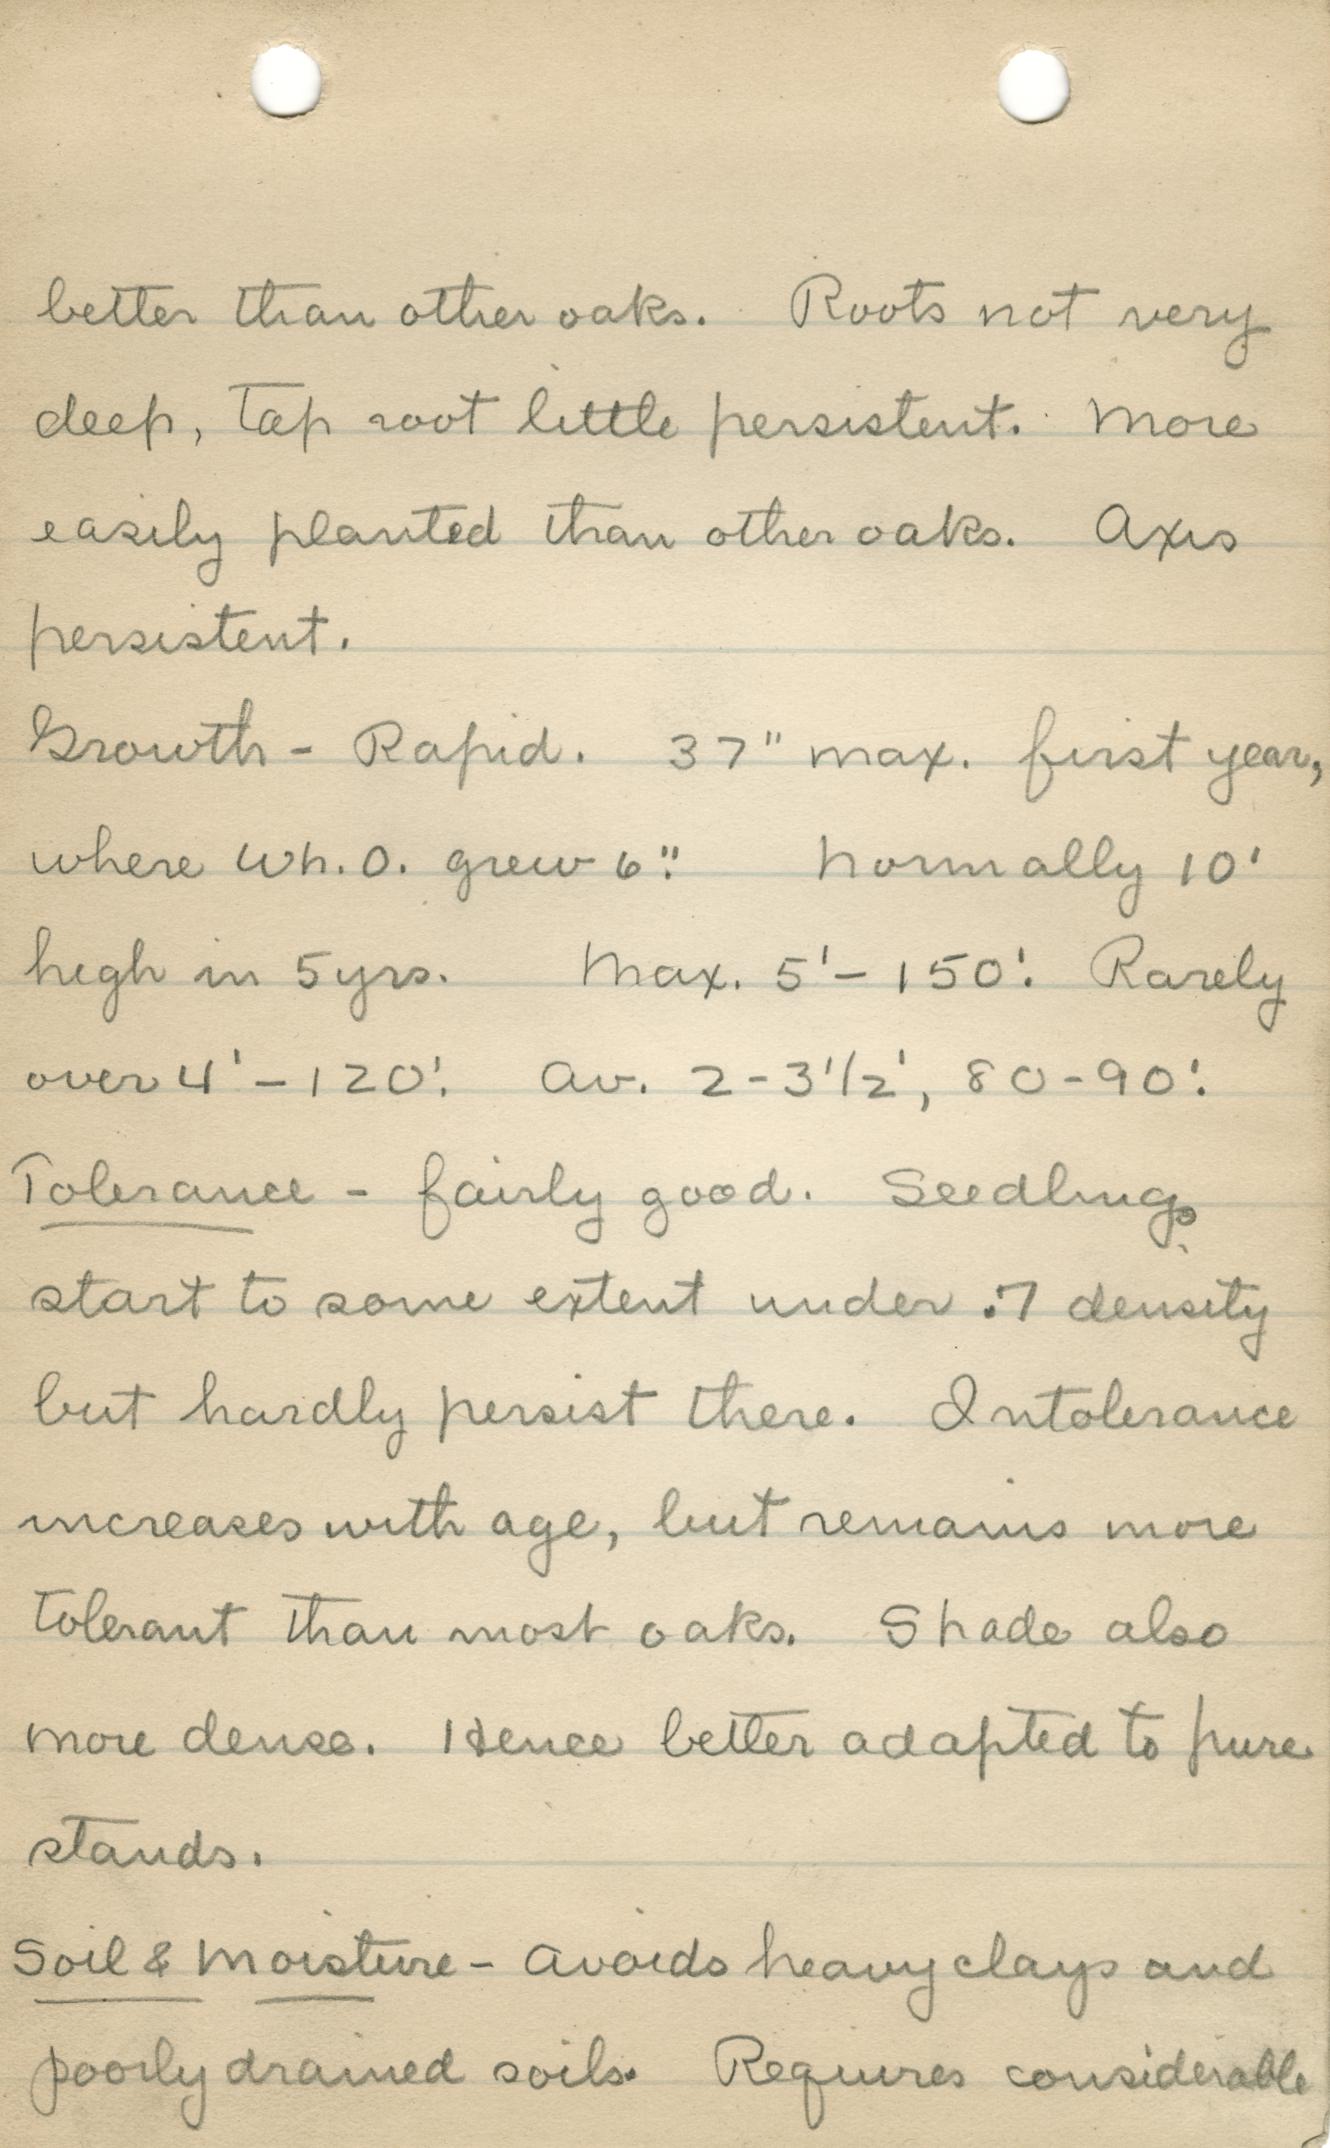 better than other oaks. Roots not very
deep, tap root little persistent. More
easily planted than other oaks. Axis
persistent.
Growth - Rapid. 37" max. first year,
where Wh. O. grew 6". Normally 10'
high in 5 yrs. Max. 5' - 150'. Rarely
over 4' - 120'. Av. 2 - 3 1/2', 80 - 90'.
Tolerance - fairly good. Seedlings
start to some extent under .7 density
but hardly persist there. Intolerance
increases with age, but remains more
tolerant than most oaks. Shade also
more dense. Hence better adapted to pure
stands.
Soil & Moisture - Avoids heavy clays and
poorly drained soils. Requires considerable